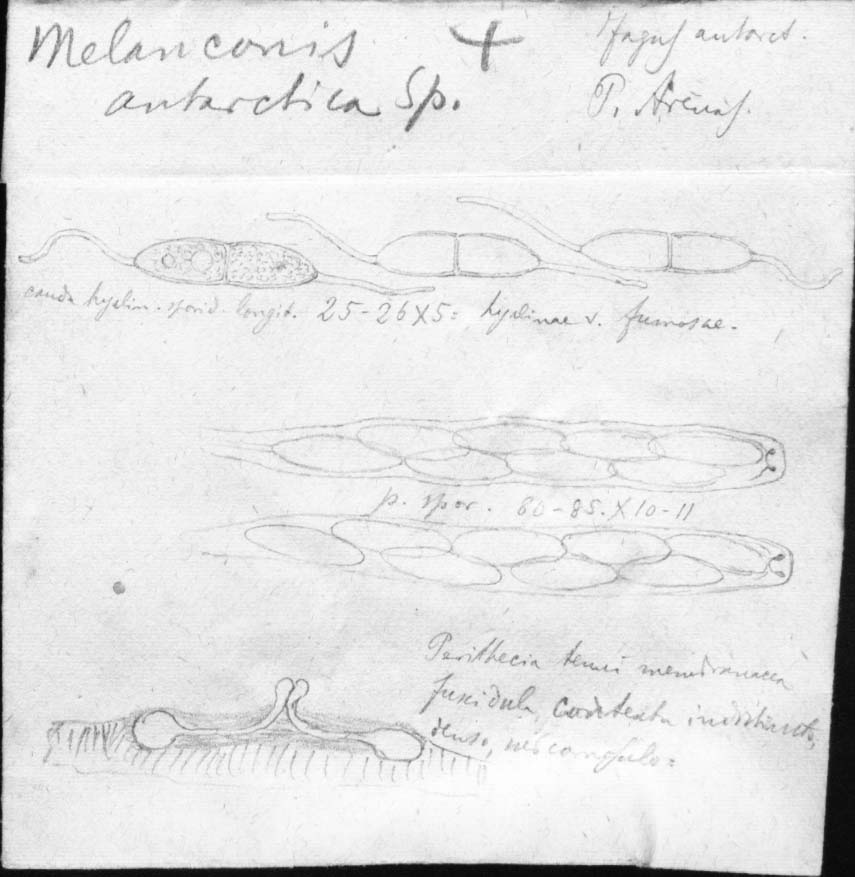 Melanconis +
antarctica Sp.
Fagus antarct.
P. Arenas.
cauda hyalin. sporid. longit. 25-26X5= hyalinae v. fumosae.
p. spor. 80-85.X10-11
Perithecia tenui membranacea
fuscidula, contextu indistincto,
denso,